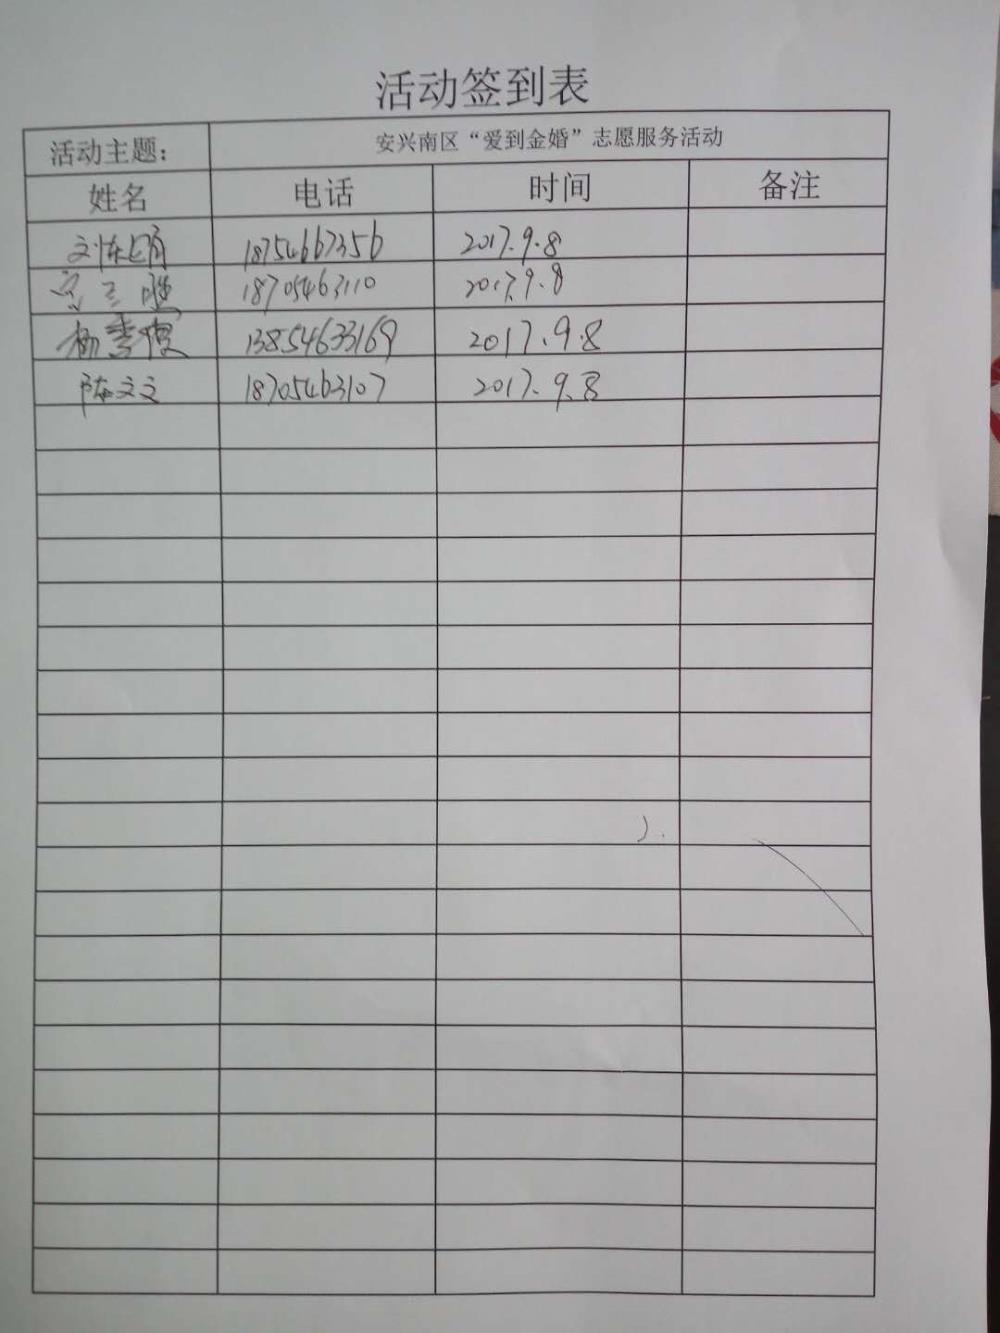 活动签到表
活动主题： 安兴南区“爱到金婚”志愿服务活动
姓名 电话 时间 备注
刘 18754667356 2017.9.8
18705463110 2017.9.8
杨秀俊 13854633169 2017.9.8
陈文文 18705463107 2017.9.8